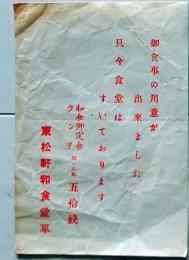 御食事の用意が
出来ました
只今食堂は
すいております
和食御定食
ランチ
五拾錢
東松軒和食堂